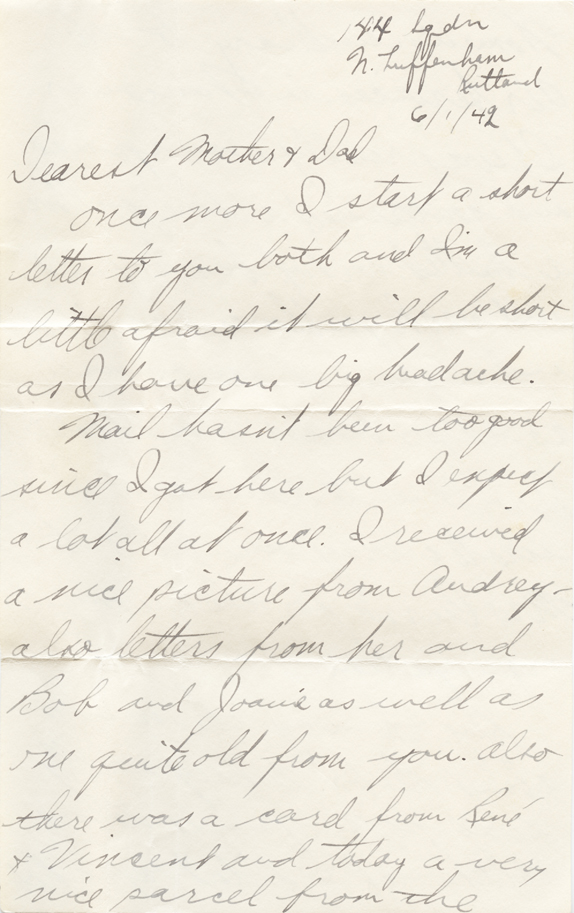 144 Sqdn
N. Luffenham
Rutland
6/1/42
Dearest Mother & Dad
once more I start a short
letter to you both and I'm a
little afraid it will be short
as I have one big headache.
Mail hasn't been too good
since I got here but I expect
a lot all at once. I received
a nice picture from Audrey -
also letters from her and
Bob and Joanie as well as
one quite old from you. also
there was a card from René
& Vincent and today a very
nice parcel from the